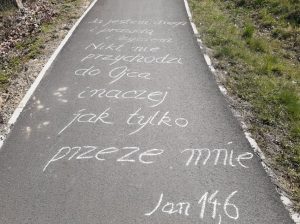 Ja jestem drogą
i prawdą
i życiem
Nikt nie
przychodzi
do Ojca
inaczej
jak tylko
przeze mnie
Jan 14,6